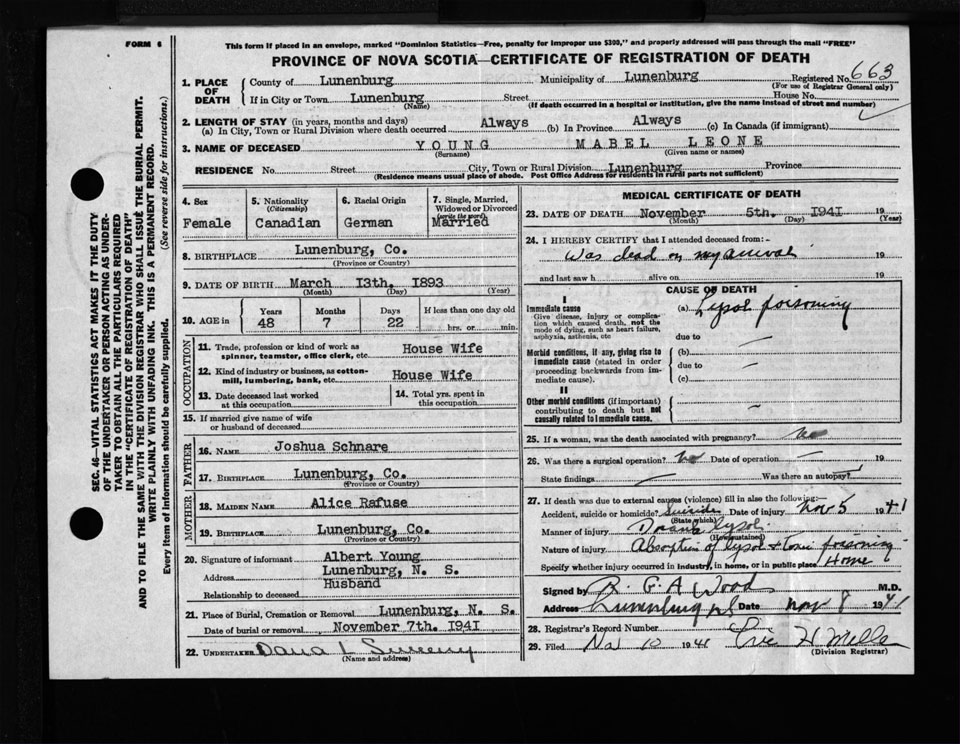 FORM 6
This form if placed in an envelope, marked "Dominion Statistics—Free, penalty for improper use $300," and properly addressed will pass through the mail "FREE"
PROVINCE OF NOVA SCOTIA—CERTIFICATE OF REGISTRATION OF DEATH
1. PLACE OF DEATH
County of Lunenburg Municipality of Lunenburg Registered No. 663
(For use of Registrar General only)
If in City or Town Lunenburg Street House No.
(Name) (If death occurred in a hospital or institution, give the name instead of street and number)
2. LENGTH OF STAY (in years, months and days)
(a) In City, Town or Rural Division where death occurred Always (b) In Province Always (c) In Canada (if immigrant)
3. NAME OF DECEASED YOUNG MABEL LEONE
(Surname) (Given name or names)
RESIDENCE No. Street City, Town or Rural Division Lunenburg Province
(Residence means usual place of abode. Post Office Address for residents in rural parts not sufficient)
4. Sex Female
5. Nationality (Citizenship) Canadian
6. Racial Origin German
7. Single, Married, Widowed or Divorced (write the word) Married
8. BIRTHPLACE Lunenburg, Co.
(Province or Country)
9. DATE OF BIRTH March I3th. I893
(Month) (Day) (Year)
10. AGE in Years Months Days If less than one day old
48 7 22 hrs. or min.
OCCUPATION
11. Trade, profession or kind of work as spinner, teamster, office clerk, etc. House Wife
12. Kind of industry or business, as cotton-mill, lumbering, bank, etc. House Wife
13. Date deceased last worked at this occupation
14. Total yrs. spent in this occupation
15. If married give name of wife or husband of deceased
FATHER
16. NAME Joshua Schnare
17. BIRTHPLACE Lunenburg, Co.
(Province or Country)
MOTHER
18. MAIDEN NAME Alice Rafuse
19. BIRTHPLACE Lunenburg, Co.
(Province or Country)
20. Signature of informant Albert Young
Address Lunenburg, N. S.
Relationship to deceased Husband
21. Place of Burial, Cremation or Removal Lunenburg, N. S.
Date of burial or removal November 7th. I94I
22. UNDERTAKER Dana L Sweeny
(Name and address)
MEDICAL CERTIFICATE OF DEATH
23. DATE OF DEATH November 5th. I94I 19
(Month) (Day) (Year)
24. I HEREBY CERTIFY that I attended deceased from:-
Was dead on my arrival 19
and last saw h alive on 19
CAUSE OF DEATH
I
Immediate cause
Give disease, injury or complication which caused death, not the mode of dying, such as heart failure, asphyxia, asthenia, etc
(a) Lysol poisoning
due to —
Morbid conditions, if any, giving rise to immediate cause (stated in order proceeding backwards from immediate cause).
(b)
due to —
(c)
II
Other morbid conditions (if important) contributing to death but not causally related to immediate cause. —
25. If a woman, was the death associated with pregnancy? No
26. Was there a surgical operation? No Date of operation — 19
State findings — Was there an autopsy?
27. If death was due to external causes (violence) fill in also the following:-
Accident, suicide or homicide? Suicide Date of injury Nov 5 1941
(State which)
Manner of injury Drank lysol
(How sustained)
Nature of injury Absorption of lysol + toxic poisoning
Specify whether injury occurred in industry, in home, or in public place Home
Signed by R. G A Wood M.D.
Address Lunenburg Date Nov 8 1941
28. Registrar's Record Number
29. Filed Nov 10 1941
(Division Registrar)
SEC. 46—VITAL STATISTICS ACT MAKES IT THE DUTY
OF THE UNDERTAKER OR PERSON ACTING AS UNDER-
TAKER TO OBTAIN ALL THE PARTICULARS REQUIRED
IN THE "CERTIFICATE OF REGISTRATION OF DEATH"
AND TO FILE THE SAME WITH THE DIVISION REGISTRAR WHO SHALL ISSUE THE BURIAL PERMIT.
WRITE PLAINLY WITH UNFADING INK. THIS IS A PERMANENT RECORD.
Every item of information should be carefully supplied. (See reverse side for instructions.)